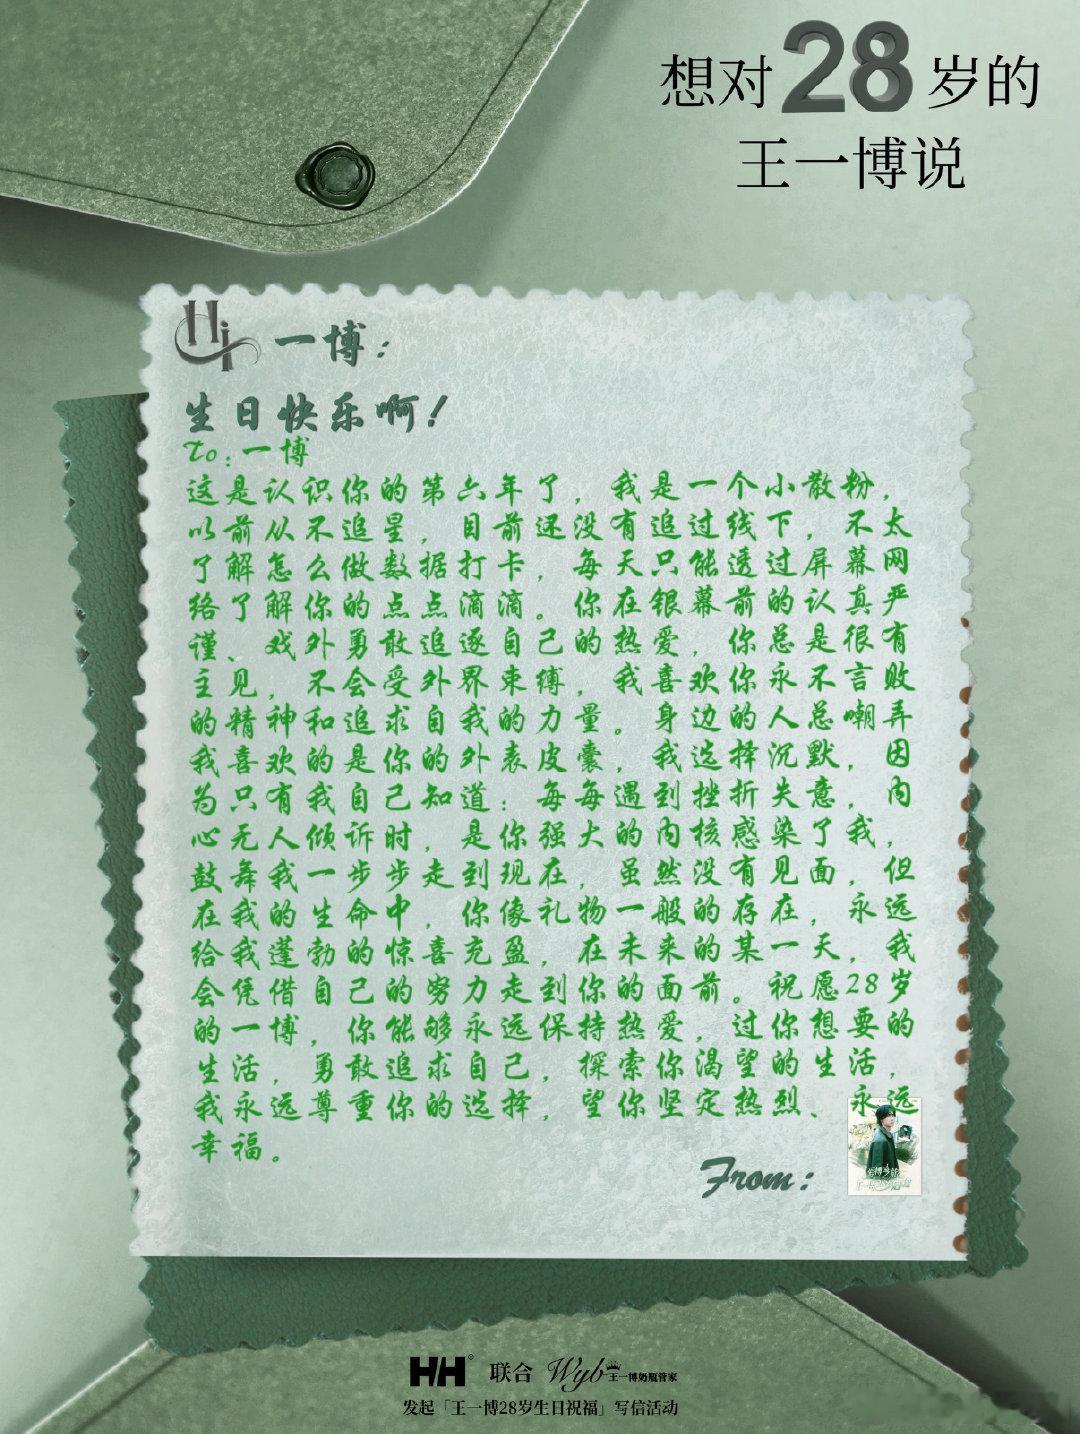 想对28岁的
王一博说
Hi 一博：
生日快乐啊！
To：一博
这是认识你的第六年了，我是一个小散粉，
以前从不追星，目前还没有追过线下，不太
了解怎么做数据打卡，每天只能透过屏幕网
络了解你的点点滴滴。你在银幕前的认真严
谨、戏外勇敢追逐自己的热爱，你总是很有
主见，不会受外界束缚，我喜欢你永不言败
的精神和追求自我的力量。身边的人总嘲弄
我喜欢的是你的外表皮囊，我选择沉默，因
为只有我自己知道：每每遇到挫折失意，内
心无人倾诉时，是你强大的内核感染了我，
鼓舞我一步步走到现在，虽然没有见面，但
在我的生命中，你像礼物一般的存在，永远
给我蓬勃的惊喜充盈，在未来的某一天，我
会凭借自己的努力走到你的面前。祝愿28岁
的一博，你能够永远保持热爱，过你想要的
生活，勇敢追求自己，探索你渴望的生活，
我永远尊重你的选择，望你坚定热烈、永远
幸福。
From：
HH® 联合 Wyb王一博奶瓶管家
发起「王一博28岁生日祝福」写信活动